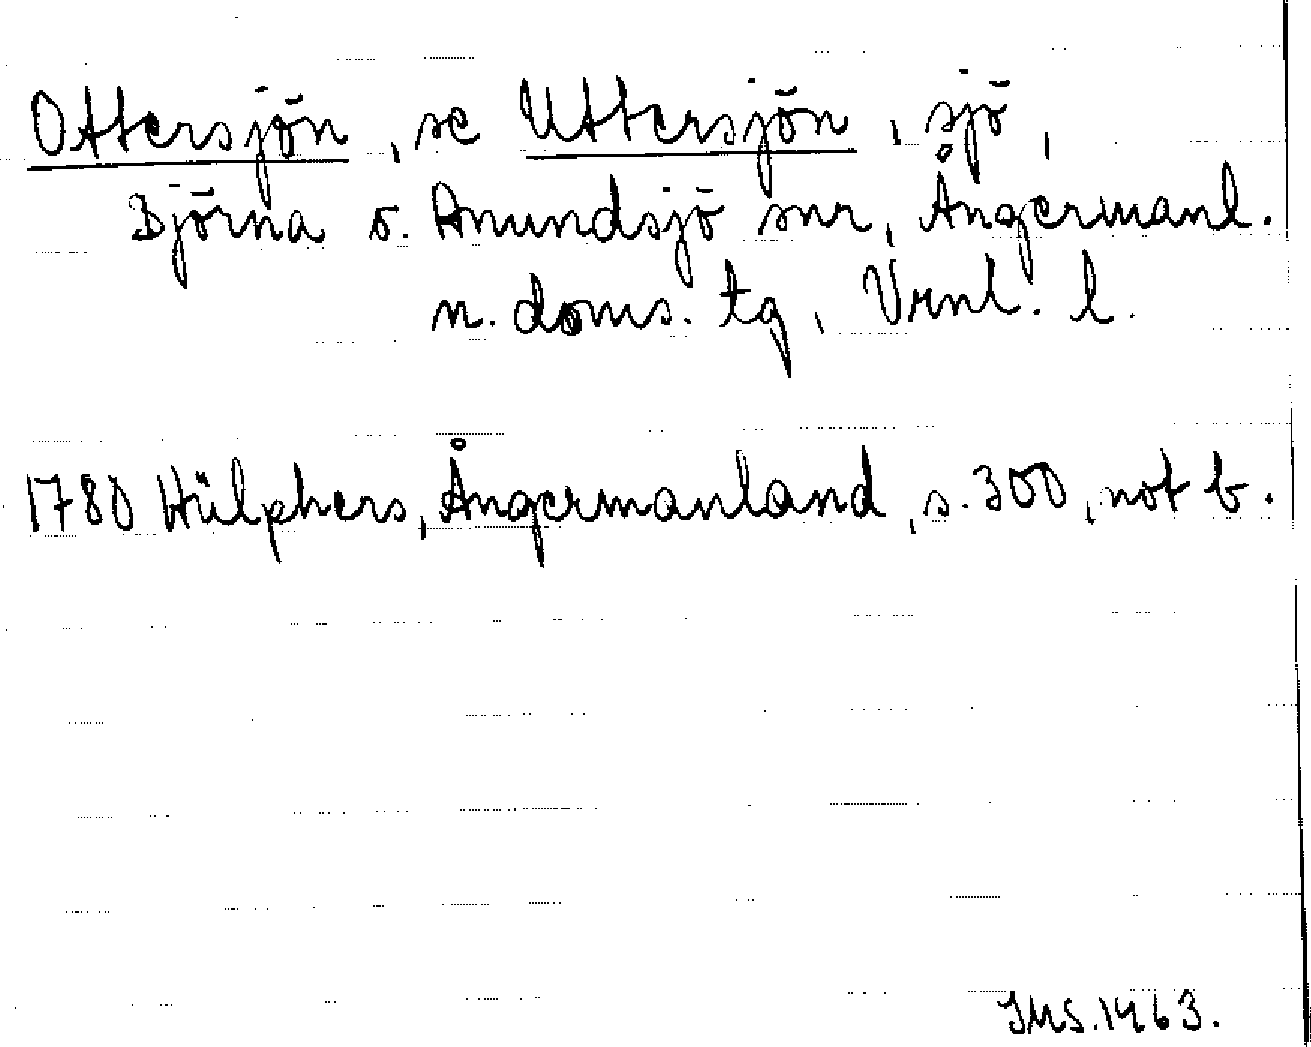 Ottersjön, se Uttersjön, sjö,
Björna s. Anundsjö snr, Ångermanl.
n. doms. tg, Vrnl. l.
1780 Hülphers, Ångermanland, s. 300, not b.
JMS. 1963.